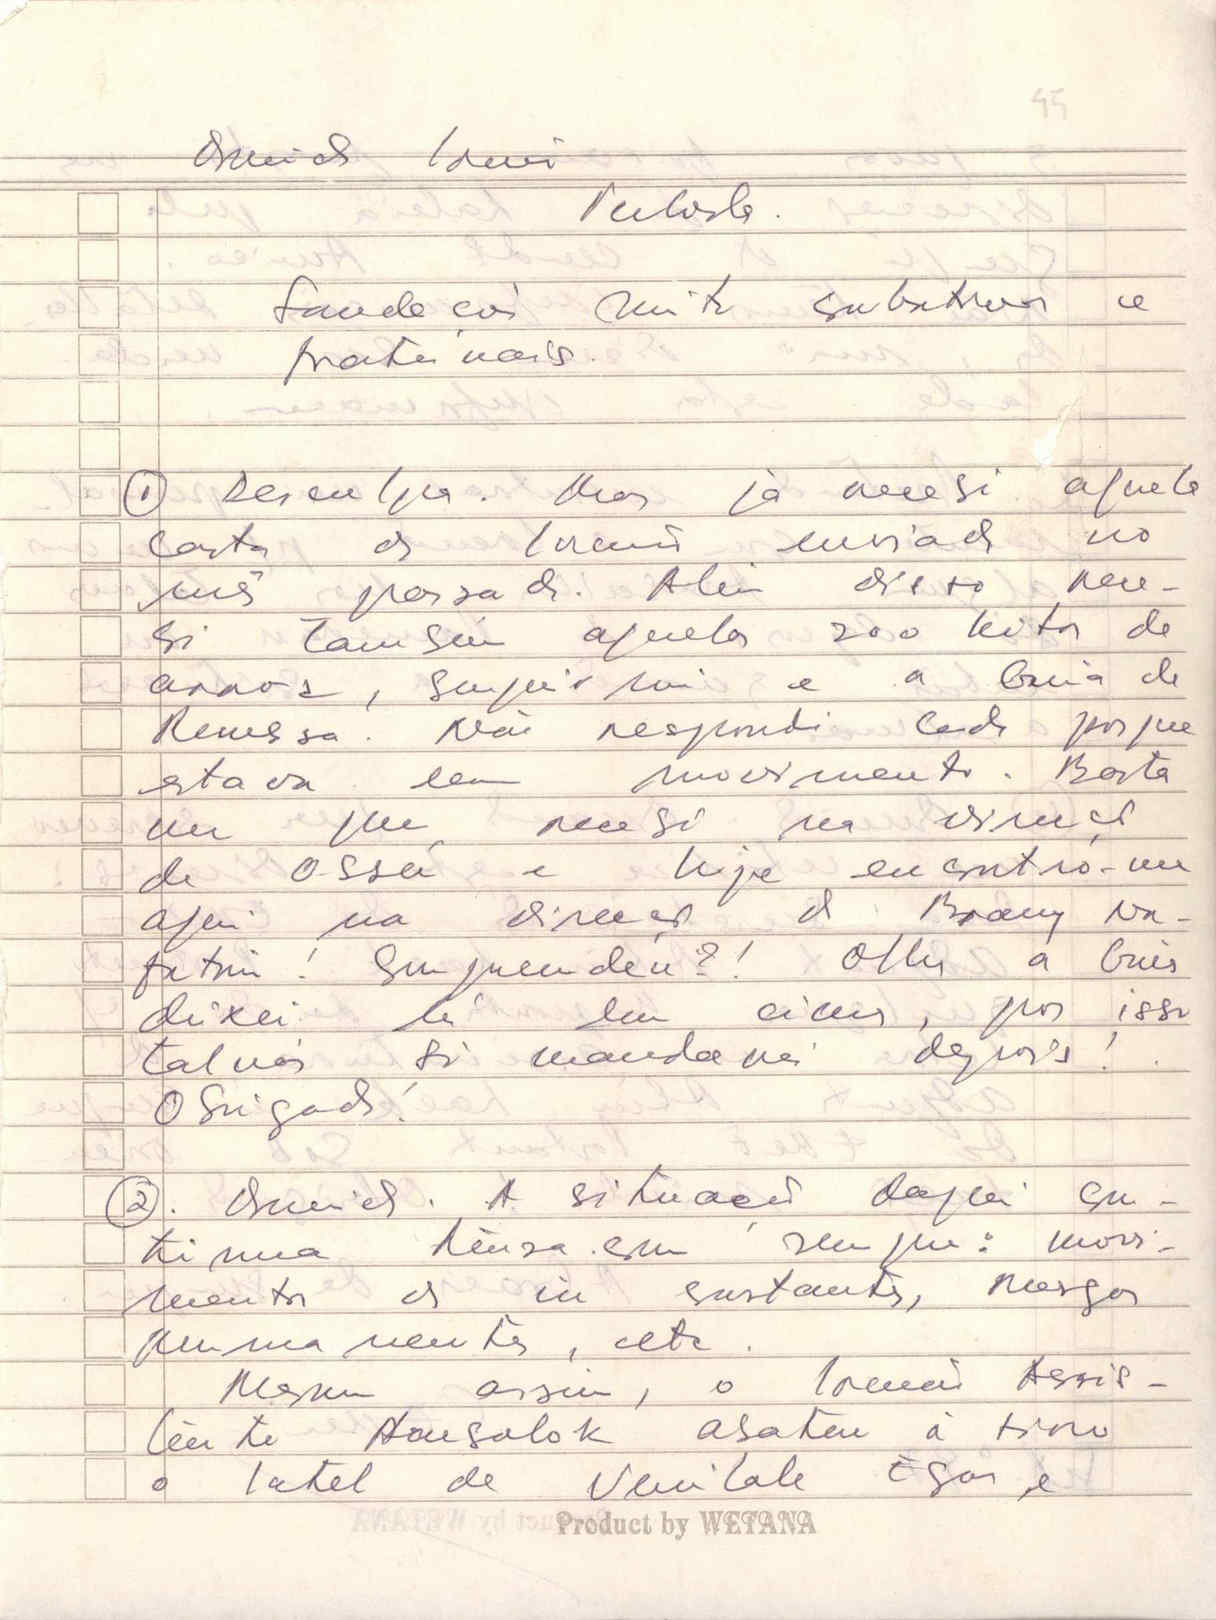 45
Querido Irmão
Saudações muito substivas e
fraternais.
① Desculpa. Mas já recebi aquela
carta do Irmão enviado no
mês passado. Além disso rece-
bi também aqueles 200 kilos de
arroz, supermi e a Guia de
Remessa. Não respondi cedo porque
estava em movimento. Basta
ver que recebi na direcção
de Ossú e hoje encontro-me
aqui na direcção de
! Surpreendeu?! Olha a Guia
deixei lá em cima, por isso
talvez só mandarei depois!
Obrigado!
②. Querido. A situação daqui con-
tinua tensa com sempre: movi-
mentos do in constantes, rusgas
permanentes, etc.
Mesmo assim, o Irmão Assis-
tente abateu à tiro
o de Venilale Egas, e
Product by WETANA